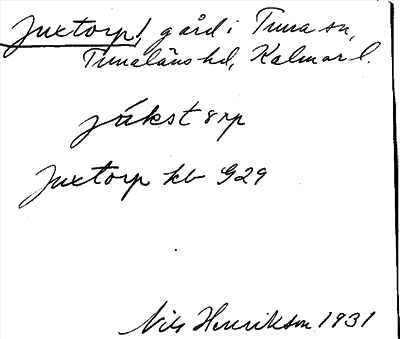 Juxtorp, gård i Tuna sn,
Tunaläns hd, Kalmar l.
júkstorp
Juxtorp kb G29
Nils Henrikson 1931